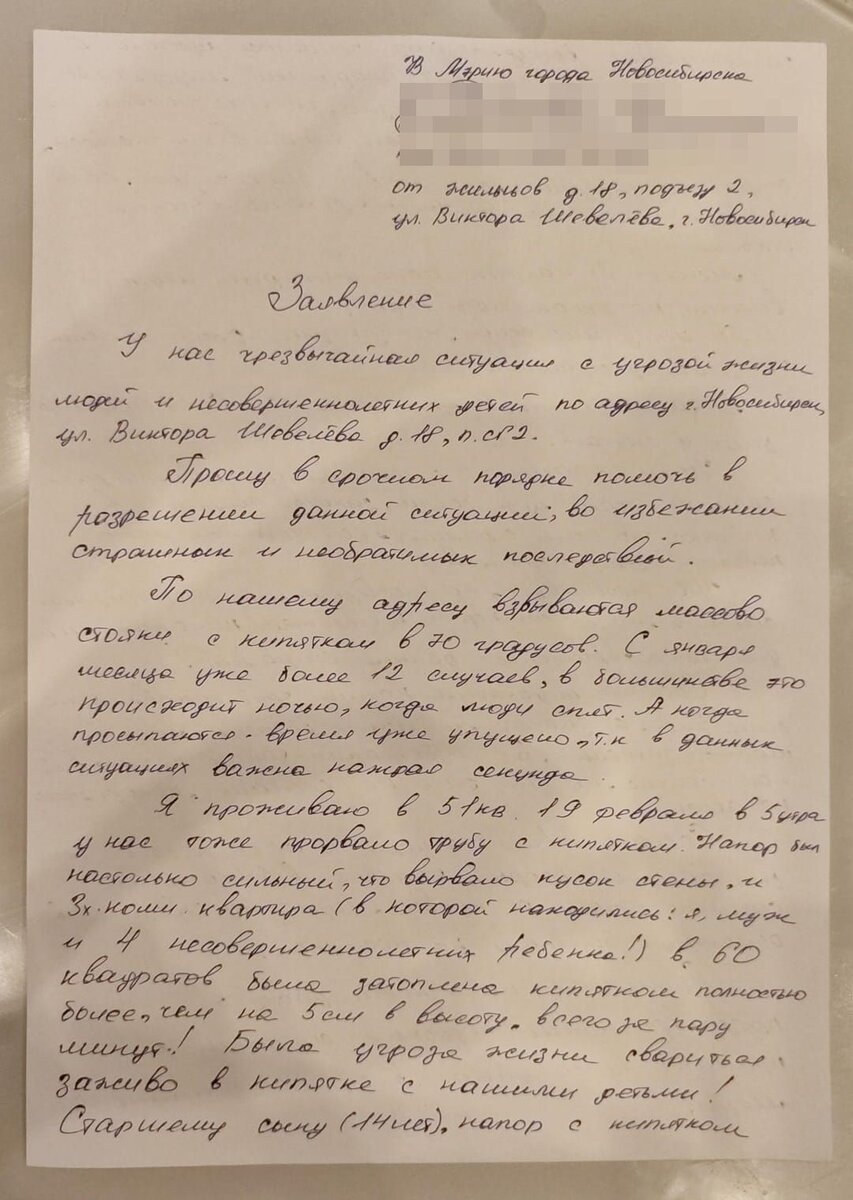 В Мэрию города Новосибирска
от жильцов д.18, подъезд 2,
ул. Виктора Шевелёва, г. Новосибирск
Заявление
У нас чрезвычайная ситуация с угрозой жизни
людей и несовершеннолетних детей по адресу г. Новосибирск,
ул. Виктора Шевелёва д.18, п. №2.
Прошу в срочном порядке помочь в
разрешении данной ситуации, во избежании
страшных и необратимых последствий.
По нашему адресу взрываются массово
стояки с кипятком в 70 градусов. С января
месяца уже более 12 случаев, в большинстве это
происходит ночью, когда люди спят. А когда
просыпаются - время уже упущено, т.к в данных
ситуациях важна каждая секунда.
Я проживаю в 51 кв. 19 февраля в 5 утра
у нас тоже прорвало трубу с кипятком. Напор был
настолько сильный, что вырвало кусок стены. и
3х комн. квартира (в которой находились: я, муж
и 4 несовершеннолетних ребенка!) в 60
квадратов была затоплена кипятком полностью
более, чем на 5см в высоту, всего за пару
минут! Была угроза жизни свариться
заживо в кипятке с нашими детьми!
Старшему сыну (14 лет), напор с кипятком